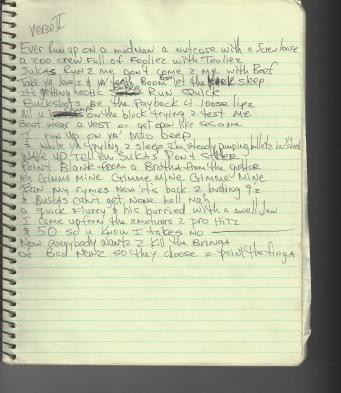 Verse II
Ever run up on a madman a nutcase with a screw loose
a zoo crew full of Fooliez with Tooliez
Sukas Run 2 me Don't come 2 me with Beef
Take ya jewlz & ya teeth Boom Boom let the sleep
its getting hectic Run Quick
Buckshots Be the Payback 4 loose lipz
All u on the block trying 2 test me
Best wear a vest or get open like sesame
I run up on ya Mob Deep
& While ya trying 2 sleep I'm steady pumping bulletz in ya
Wake up Tell em Sukas Don't
Point Blank from a Brotha from the gutter
Ya Gimme Mine Gimme Mine Gimme Mine
Ran my rymes Now its back 2 busting 9z
& Bustas can't get None hell nah
a quick flurry & his burried with a swell Jaw
I came up from the amateurs 2 pro Hitz
& 50 so u know I takes no
Now everybody Wantz 2 Kill the Bringa
of Bad Newz so they choose 2 point the finga